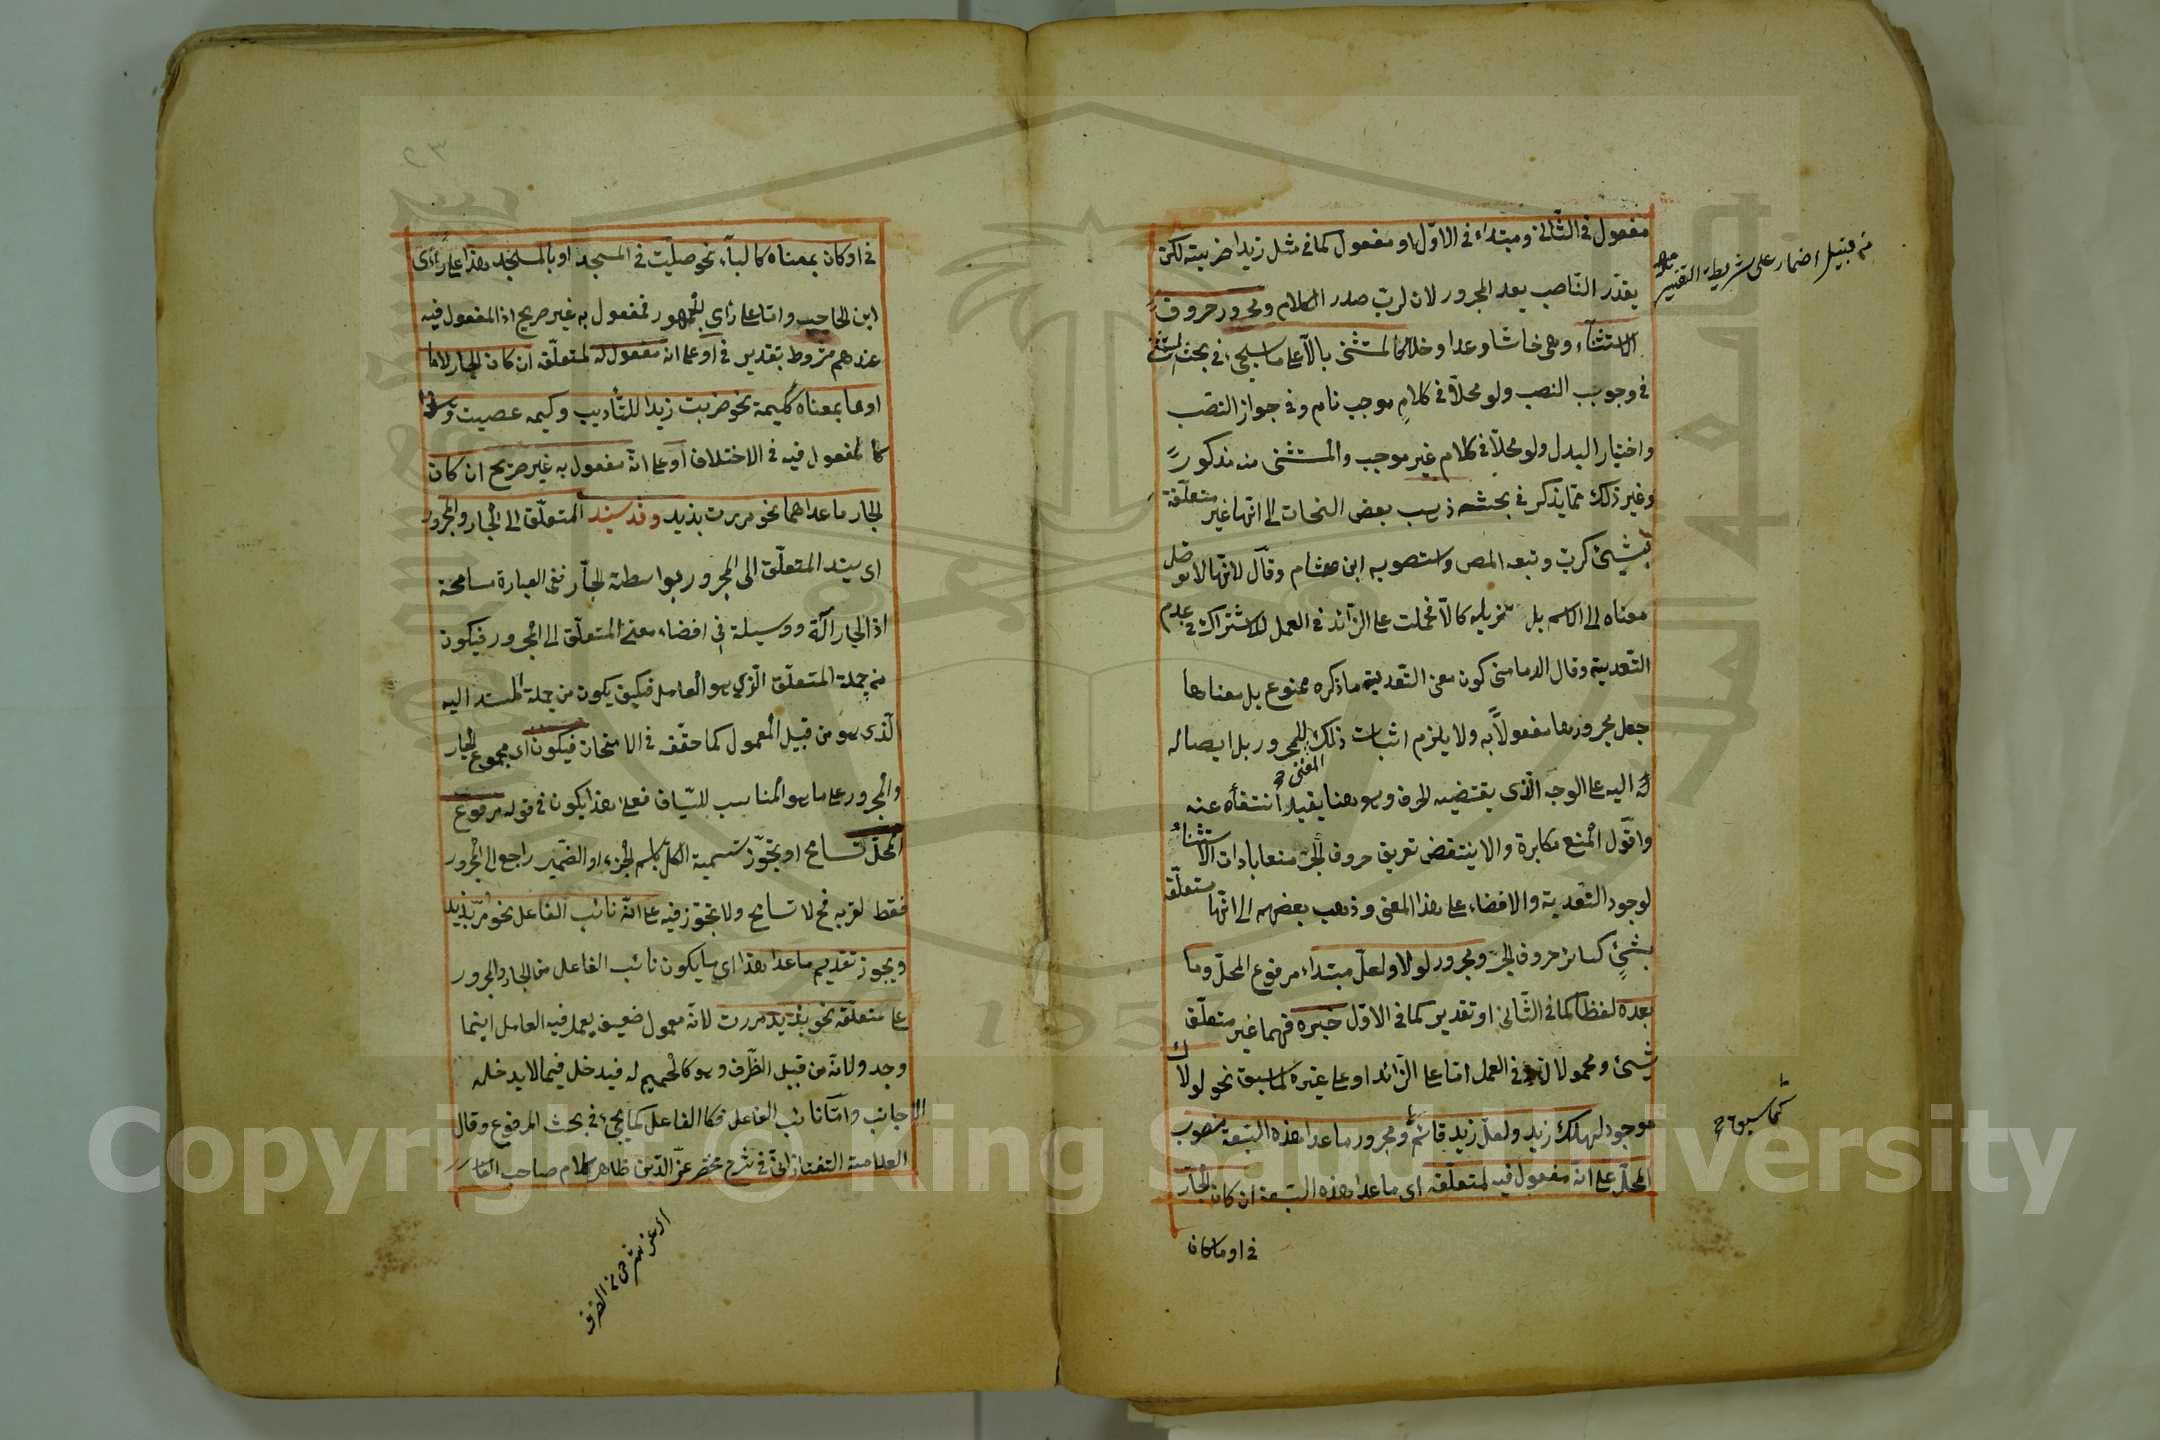 مفعول في الثاني ومبتداء في الاول او مفعول كما في مثل زيدا ضربته لكن
يقدر الناصب بعد المجرور لان لرب صدر الكلام ومجرور حروف
الاستثناء وهي حاشا وعدا وخلا كالمستثنى بالا على ما سيجيء في بحث المستثنى
في وجوب النصب ولو محلا في كلام موجب تام وفي جواز النصب
واختيار البدل ولو محلا في كلام غير موجب والمستثنى منه مذكور
وغير ذلك مما يذكر في بحثه ذهب بعض النحات الى انها غير متعلقة
بشيئ كرب وتبعه المص واستصوبه ابن هشام وقال لانها لا توصل
معناه الى الاسم بل تزيله كالا فحملت على الزائد في العمل للاشتراك في عدم
التعدية وقال الدماميني كون معنى التعدية ما ذكره ممنوع بل معناها
جعل مجرورها مفعولا به ولا يلزم اثبات ذلك المعنى للمجرور بل ايصاله
اليه على الوجه الذي يقتضيه الحرف وهو هنا يفيد انتفاه عنه
واقول المنع مكابرة والا ينتقض تعريف حروف الجر منعا بادات الاستثناء
لوجود التعدية والافضاء على هذا المعنى وذهب بعضهم الى انها متعلقة
بشئ كسائر حروف الجر ومجرور لولا ولعل مبتداء مرفوع المحل وما
بعده لفظا كما في الثاني او تقدير كما في الاول خبره فهما غير متعلق
بشئ ومحمولان في العمل اما على الزائد او على غيره كما سبق نحو لولاك
موجود لهلك زيد ولعل زيد قائم ومجرور ما عدا هذه السبعة منصوب
المحل على انه مفعول فيه لمتعلقه اي ما عدا هذه السبعة ان كان الجار
في او ما كان
من قبيل اضمار على شريطة التفسير
كما سبق
٢٣
في او كان بمعناه كالباء نحو صليت في المسجد او بالمسجد هذا على رأى
ابن الحاجب واما على رأى الجمهور فمفعول به غير صريح اذ المفعول فيه
عندهم مشروط بتقدير في او على انه مفعول له لمتعلقه ان كان الجار لاما
او ما بمعناه ككيمة نحو ضربت زيدا للتأديب وكيمه عصيت
كالمفعول فيه في الاختلاف او على انه مفعول به غير صريح ان كان
الجار ما عداهما نحو مررت بزيد وقد يسند المتعلق الى الجار والمجرور
اى يسند المتعلق الى المجرور بواسطة الجار ففي العبارة مسامحة
اذ الجار آلة ووسيلة في افضاء معنى المتعلق الى المجرور فيكون
من جملة المتعلق الذي هو العامل فكيف يكون من جملة المسند اليه
الذي هو من قبيل المعمول كما حققه في الامتحان فيكون اى مجموع الجار
والمجرور على ما هو المناسب للسياق فعلى هذا يكون في قوله مرفوع
المحل تسامح او تجوز تسمية الكل باسم الجزء او الضمير راجع الى المجرور
فقط لقربه فح لا تسامح ولا تجوز فيه على انه نائب الفاعل نحو مر بزيد
ويجوز تقديم ما عدا هذا اى ما يكون نائب الفاعل من الجار والمجرور
على متعلقه نحو بزيد مررت لانه معمول ضعيف يعمل فيه العامل اينما
وجد ولانه من قبيل الظرف وهو كالحميم له فيدخل فيما لا يدخله
الاجانب واما نائب الفاعل فكالفاعل كما يجيء في بحث المرفوع وقال
العلامة التفتازاني في شرح مختصر عز الدين ظاهر كلام صاحب
Copyright © King Saud University
1957